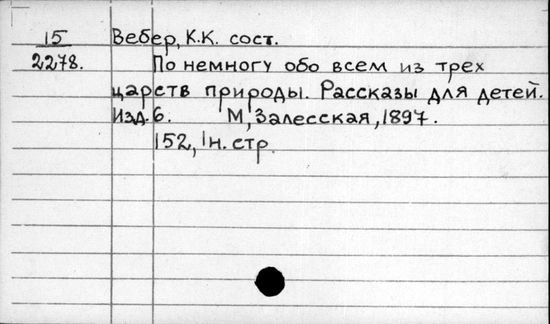 15 Вебер, К.К. сост.
2278. По немногу обо всем из трех
царств природы. Рассказы для детей.
Изд. 6. М, Залесская, 1897.
152, 1н. стр.